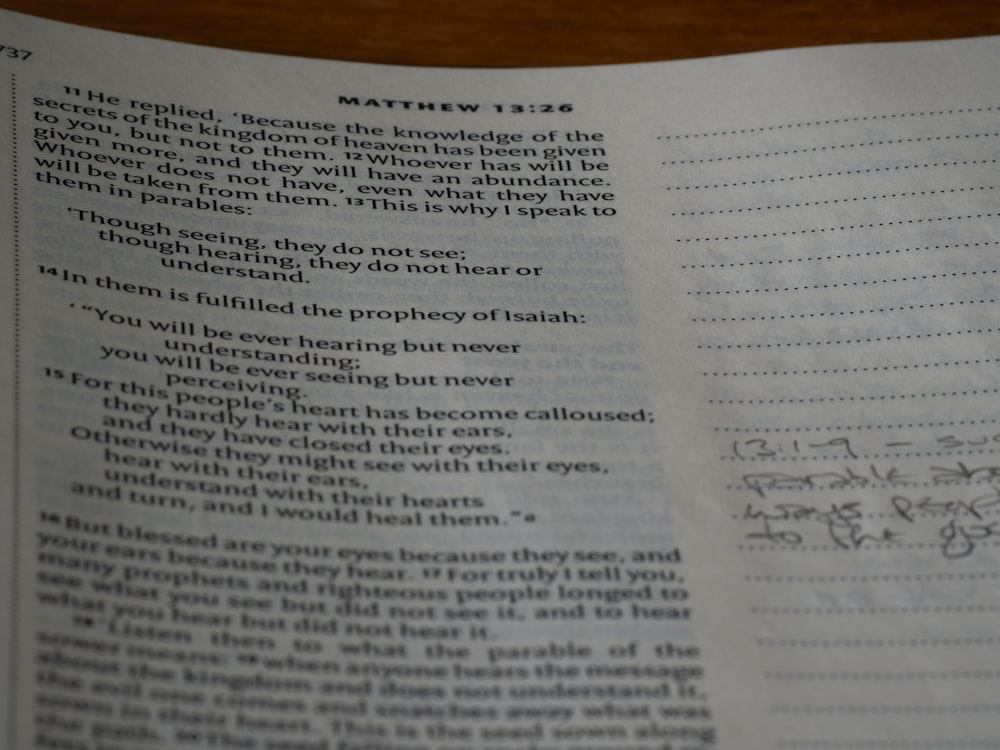 737
MATTHEW 13:26
11 He replied, ‘Because the knowledge of the
secrets of the kingdom of heaven has been given
to you, but not to them. 12 Whoever has will be
given more, and they will have an abundance.
Whoever does not have, even what they have
will be taken from them. 13 This is why I speak to
them in parables:
‘Though seeing, they do not see;
though hearing, they do not hear or
understand.
14 In them is fulfilled the prophecy of Isaiah:
‘ “You will be ever hearing but never
understanding;
you will be ever seeing but never
perceiving.
15 For this people’s heart has become calloused;
they hardly hear with their ears,
and they have closed their eyes.
Otherwise they might see with their eyes,
hear with their ears,
understand with their hearts
and turn, and I would heal them.” a
16 But blessed are your eyes because they see, and
your ears because they hear. 17 For truly I tell you,
many prophets and righteous people longed to
see what you see but did not see it, and to hear
what you hear but did not hear it.
18 ‘Listen then to what the parable of the
sower means: 19 when anyone hears the message
about the kingdom and does not understand it,
the evil one comes and snatches away what was
sown in their heart. This is the seed sown along
the path. 20 The seed falling on
13:1-9 -
parable
ways
to the